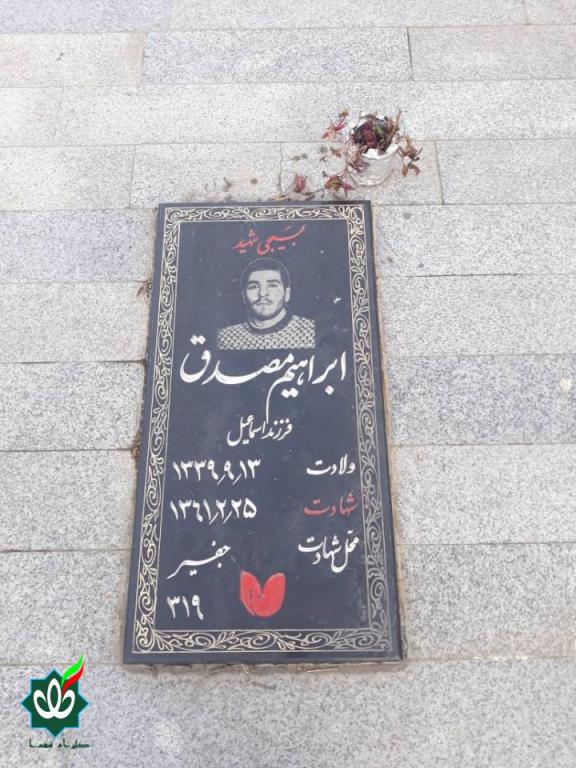 بسیجی شهید
ابراهیم مصدق
فرزند اسماعیل
ولادت ۱۳۳۹،۹،۱۳
شهادت ۱۳۶۱،۲،۲۵
محل شهادت جفیر
۳۱۹